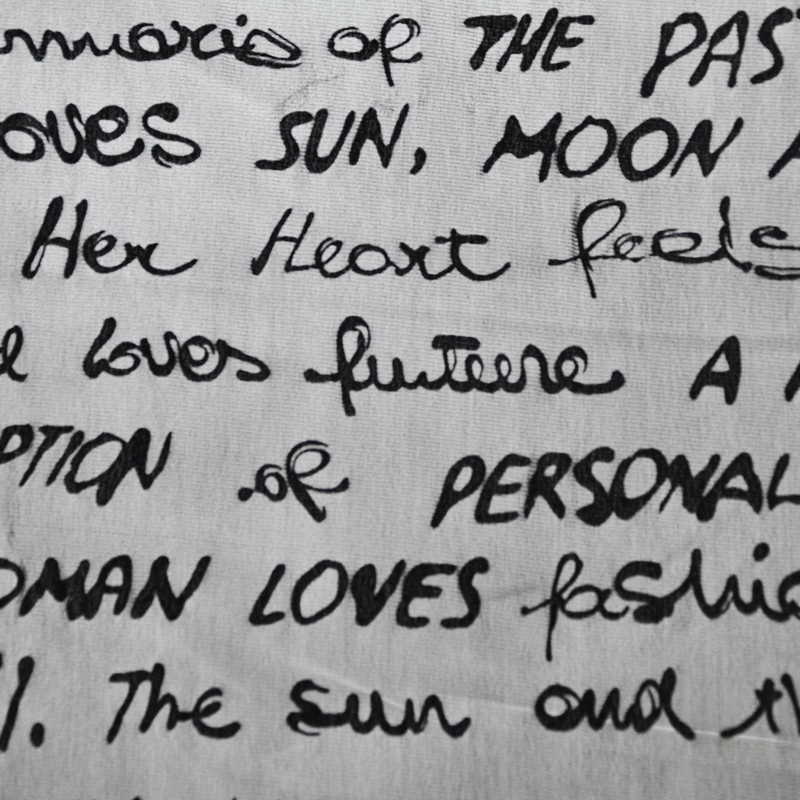 of THE PAS
oves SUN, MOON A
Her Heart feels
loves future A
PTION of PERSONAL
OMAN LOVES fashio
. The sun and th